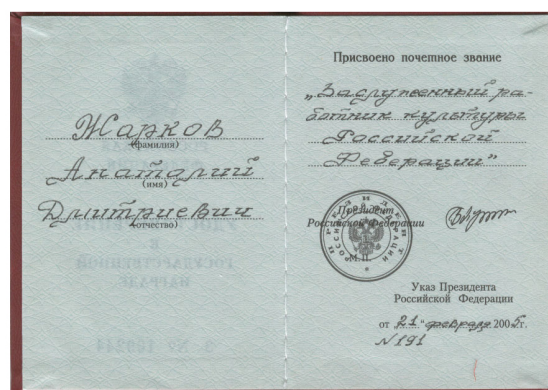 Жарков
(фамилия)
Анатолий
(имя)
Дмитриевич
(отчество)
Присвоено почетное звание
„Заслуженный ра-
ботник культуры
Российской
Федерации"
Президент
Российской Федерации
М.П.
Указ Президента
Российской Федерации
от „21" февраля 2005г.
N191